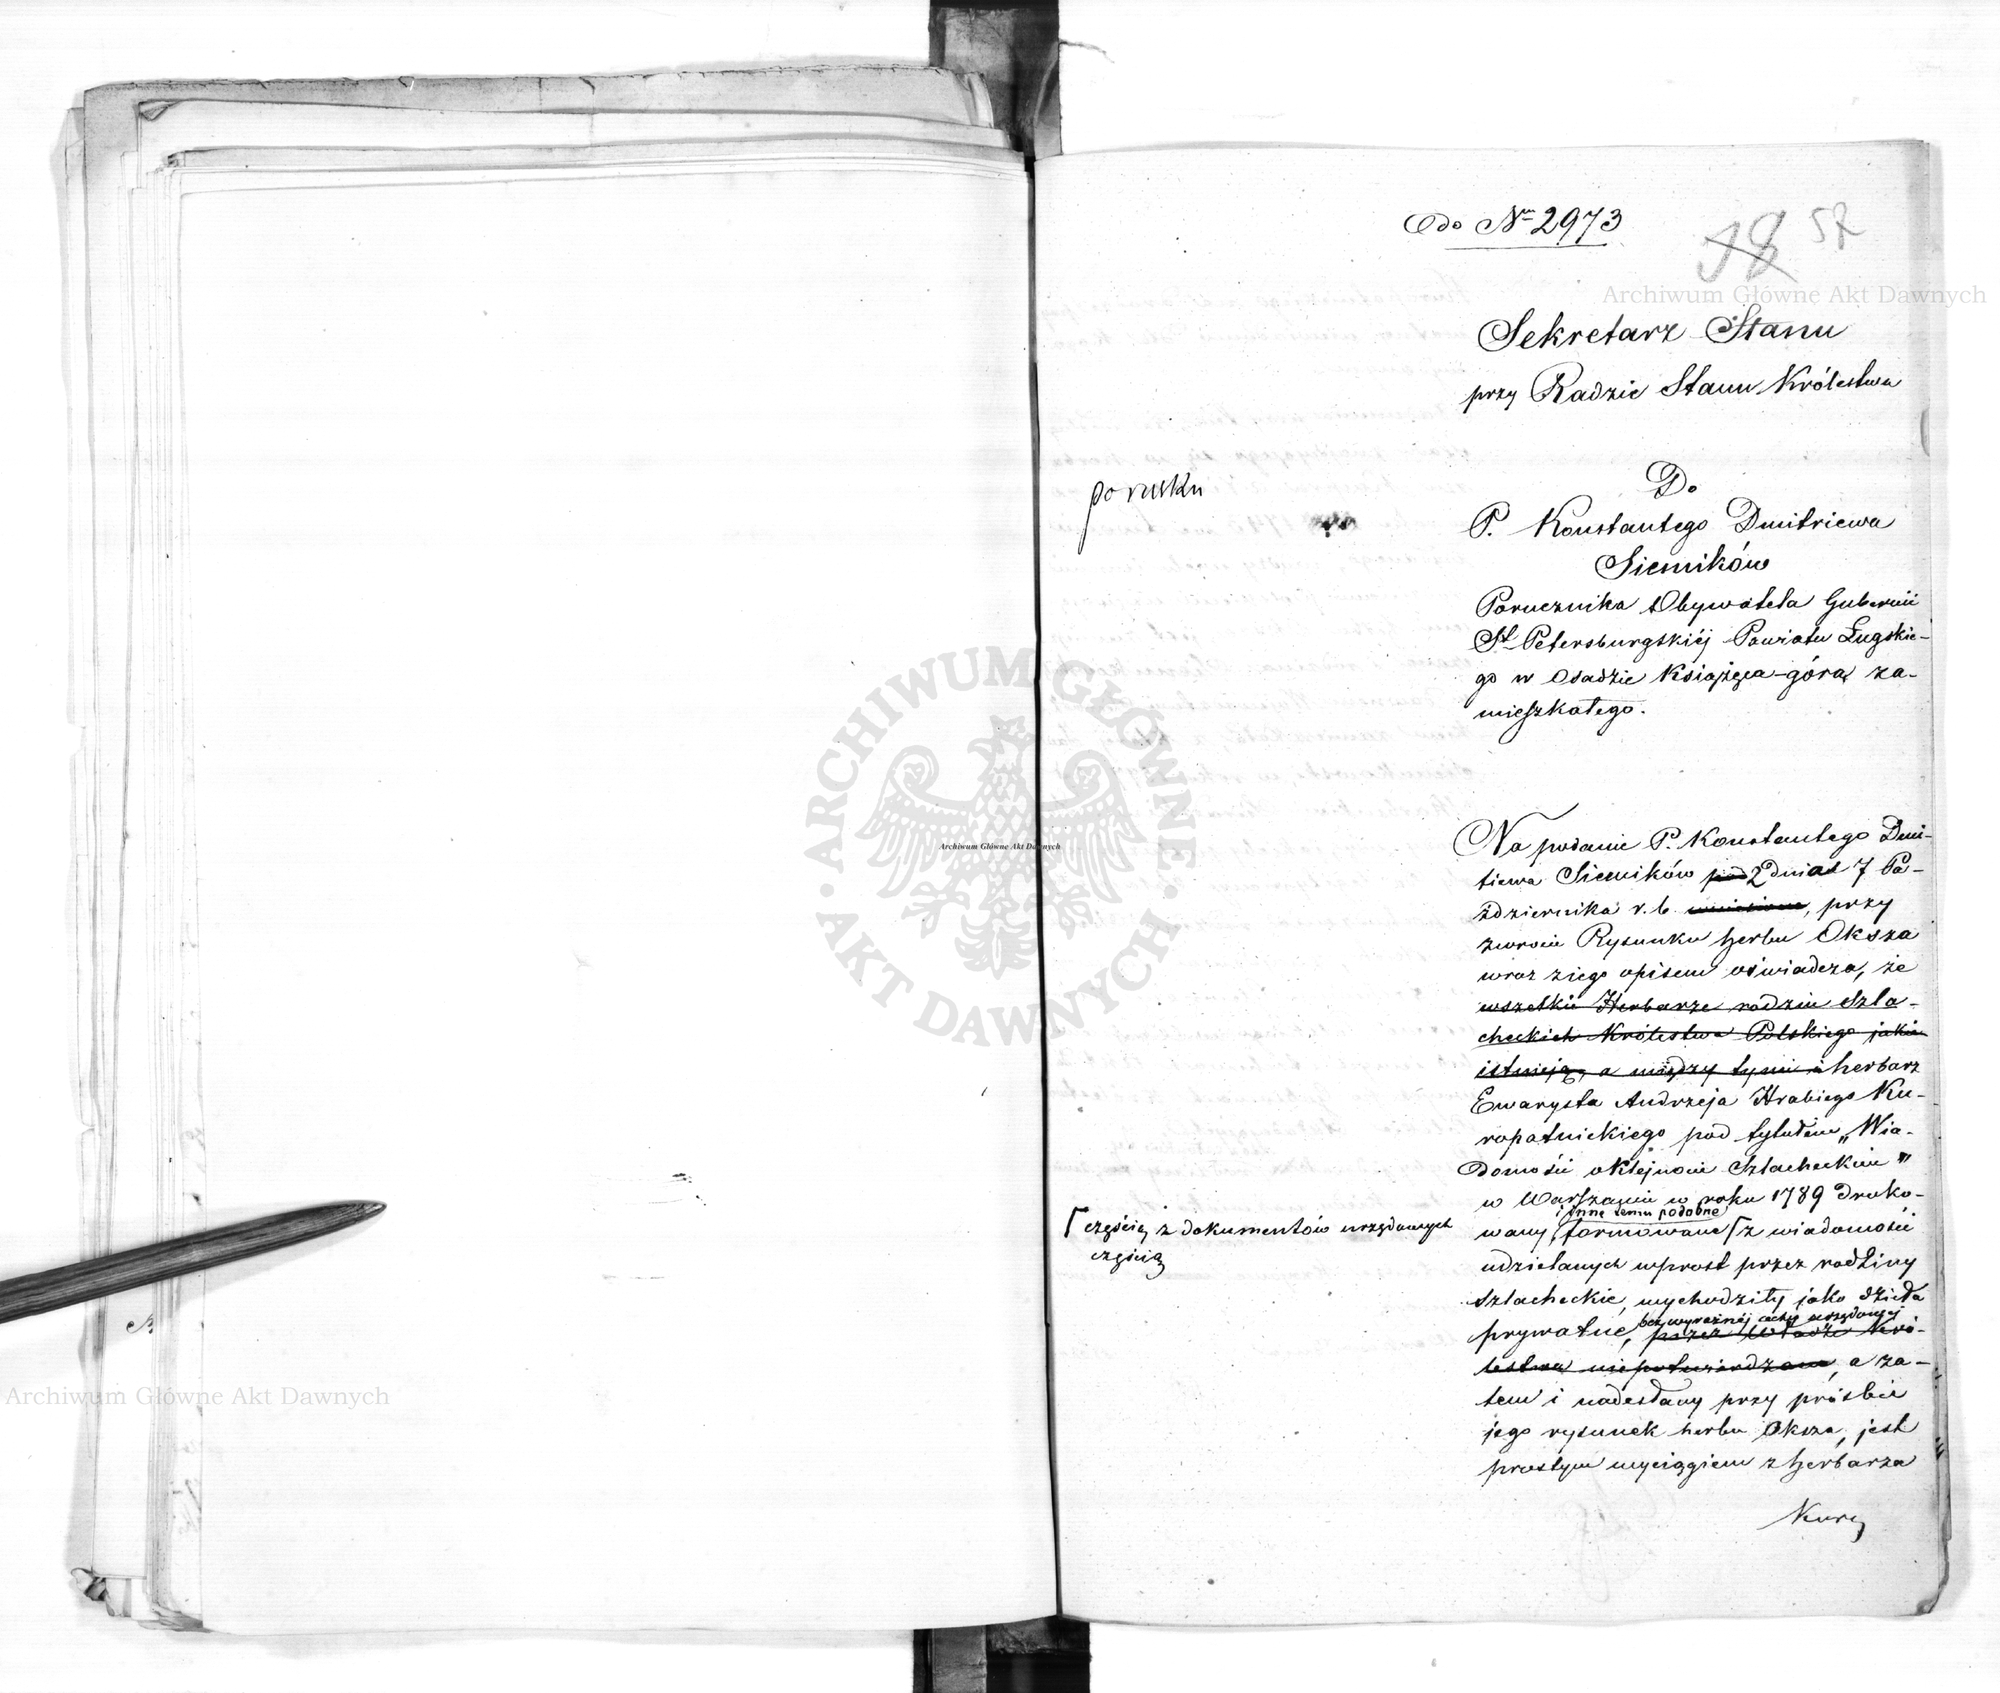 do Nru 2973
18 57
Sekretarz Stanu
przy Radzie Stanu Królestwa
po rusku
Do
P. Konstantego Dmitriewa
Siemików
Porucznika Obywatela Gubernii
St Petersburgskiéj Powiatu Ługskie-
go w Osadzie Książęca-górą za-
mieszkałego.
Na podanie P. Konstantego Dmi-
tiewa Siemików pod 2 dniad 7 Pa-
ździernika r. b. wniesione, przy
zwrocie Rysunku herbu Oksza
wraz z iego opisem oświadcza, że
wszelkie Herbarze rodzin szla-
checkich Królestwa Polskiego jakie
istnieją, a między tymi i herbarz
Ewarysta Andrzeja Hrabiego Ku-
ropatnickiego pod tytułem „Wia-
domość o klejnocie szlacheckim"
w Warszawie w roku 1789 druko-
i inne temu podobne
wany, formowane z wiadomości
częścią z dokumentów urzędowych
częścią
udzielanych wprost przez rodziny
szlacheckie, wychodziły jako dzieła
bez wyraźnéj cechy urzędowej
prywatne, przez Władze Kró-
lestwa niepotwierdzane, a za-
tem i nadesłany przy prośbie
jego rysunek herbu Oksza, jest
prostym wyciągiem z herbarza
Archiwum Główne Akt Dawnych
Archiwum Główne Akt Dawnych
Archiwum Główne Akt Dawnych
ARCHIWUM GŁÓWNE AKT DAWNYCH